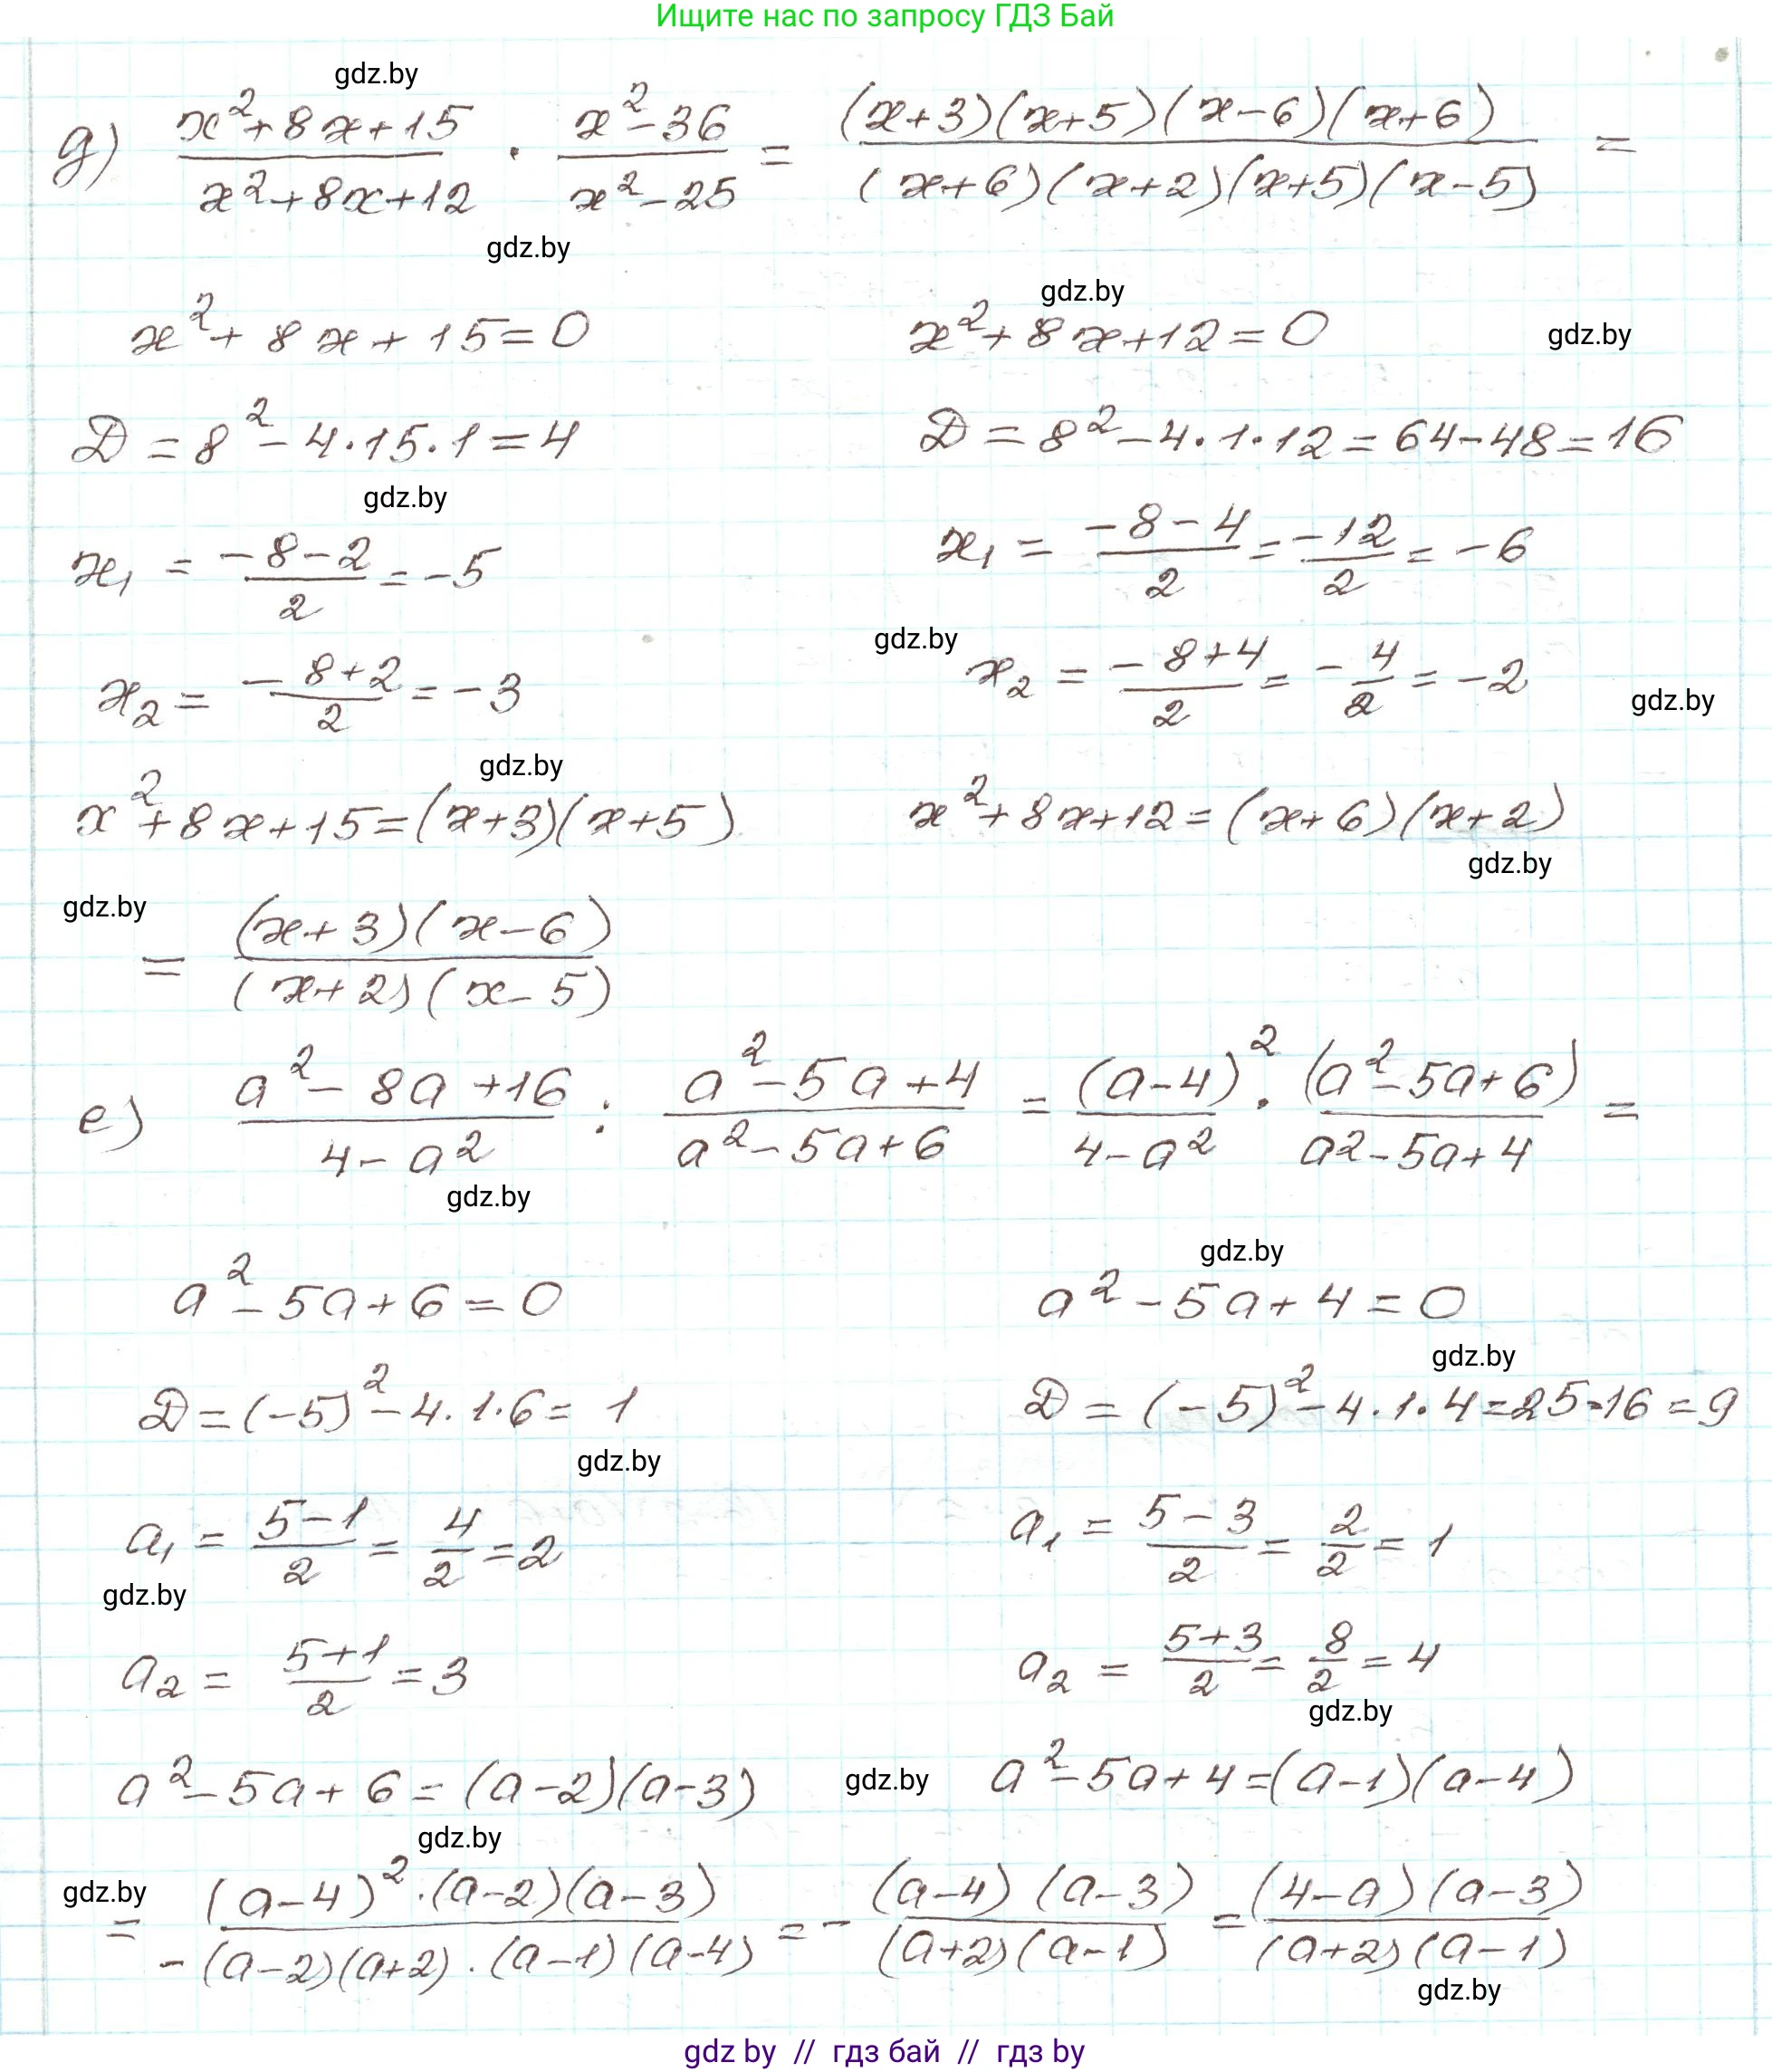 Ищите нас по запросу ГДЗ Бай
gdz.by
д) (x²+8x+15)/(x²+8x+12) · (x²-36)/(x²-25) = ((x+3)(x+5)(x-6)(x+6))/((x+6)(x+2)(x+5)(x-5)) =
gdz.by
gdz.by
x²+8x+15=0 x²+8x+12=0 gdz.by
D=8²-4·15·1=4 D=8²-4·1·12=64-48=16
gdz.by
x₁ = (-8-2)/2 = -5 x₁ = (-8-4)/2 = -12/2 = -6
gdz.by
x₂ = (-8+2)/2 = -3 x₂ = (-8+4)/2 = -4/2 = -2 gdz.by
gdz.by
x²+8x+15=(x+3)(x+5) x²+8x+12=(x+6)(x+2)
gdz.by
gdz.by
= ((x+3)(x-6))/((x+2)(x-5))
е) (a²-8a+16)/(4-a²) : (a²-5a+4)/(a²-5a+6) = (a-4)²/(4-a²) · (a²-5a+6)/(a²-5a+4) =
gdz.by
gdz.by
a²-5a+6=0 a²-5a+4=0
gdz.by
D=(-5)²-4·1·6=1 D=(-5)²-4·1·4=25-16=9
gdz.by
a₁ = (5-1)/2 = 4/2 = 2 a₁ = (5-3)/2 = 2/2 = 1
gdz.by
a₂ = (5+1)/2 = 3 a₂ = (5+3)/2 = 8/2 = 4
gdz.by
a²-5a+6=(a-2)(a-3) gdz.by a²-5a+4=(a-1)(a-4)
gdz.by
gdz.by
= ((a-4)²·(a-2)(a-3))/(-(a-2)(a+2)·(a-1)(a-4)) = - ((a-4)(a-3))/((a+2)(a-1)) = ((4-a)(a-3))/((a+2)(a-1))
gdz.by
gdz by // гдз бай // гдз by